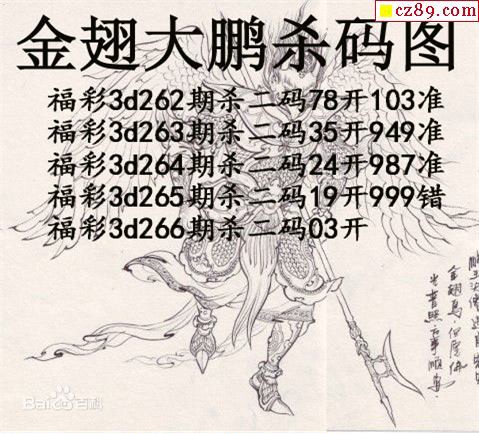 cz89.com
金翅大鹏杀码图
福彩3d262期杀二码78开103准
福彩3d263期杀二码35开949准
福彩3d264期杀二码24开987准
福彩3d265期杀二码19开999错
福彩3d266期杀二码03开
Baidu百科